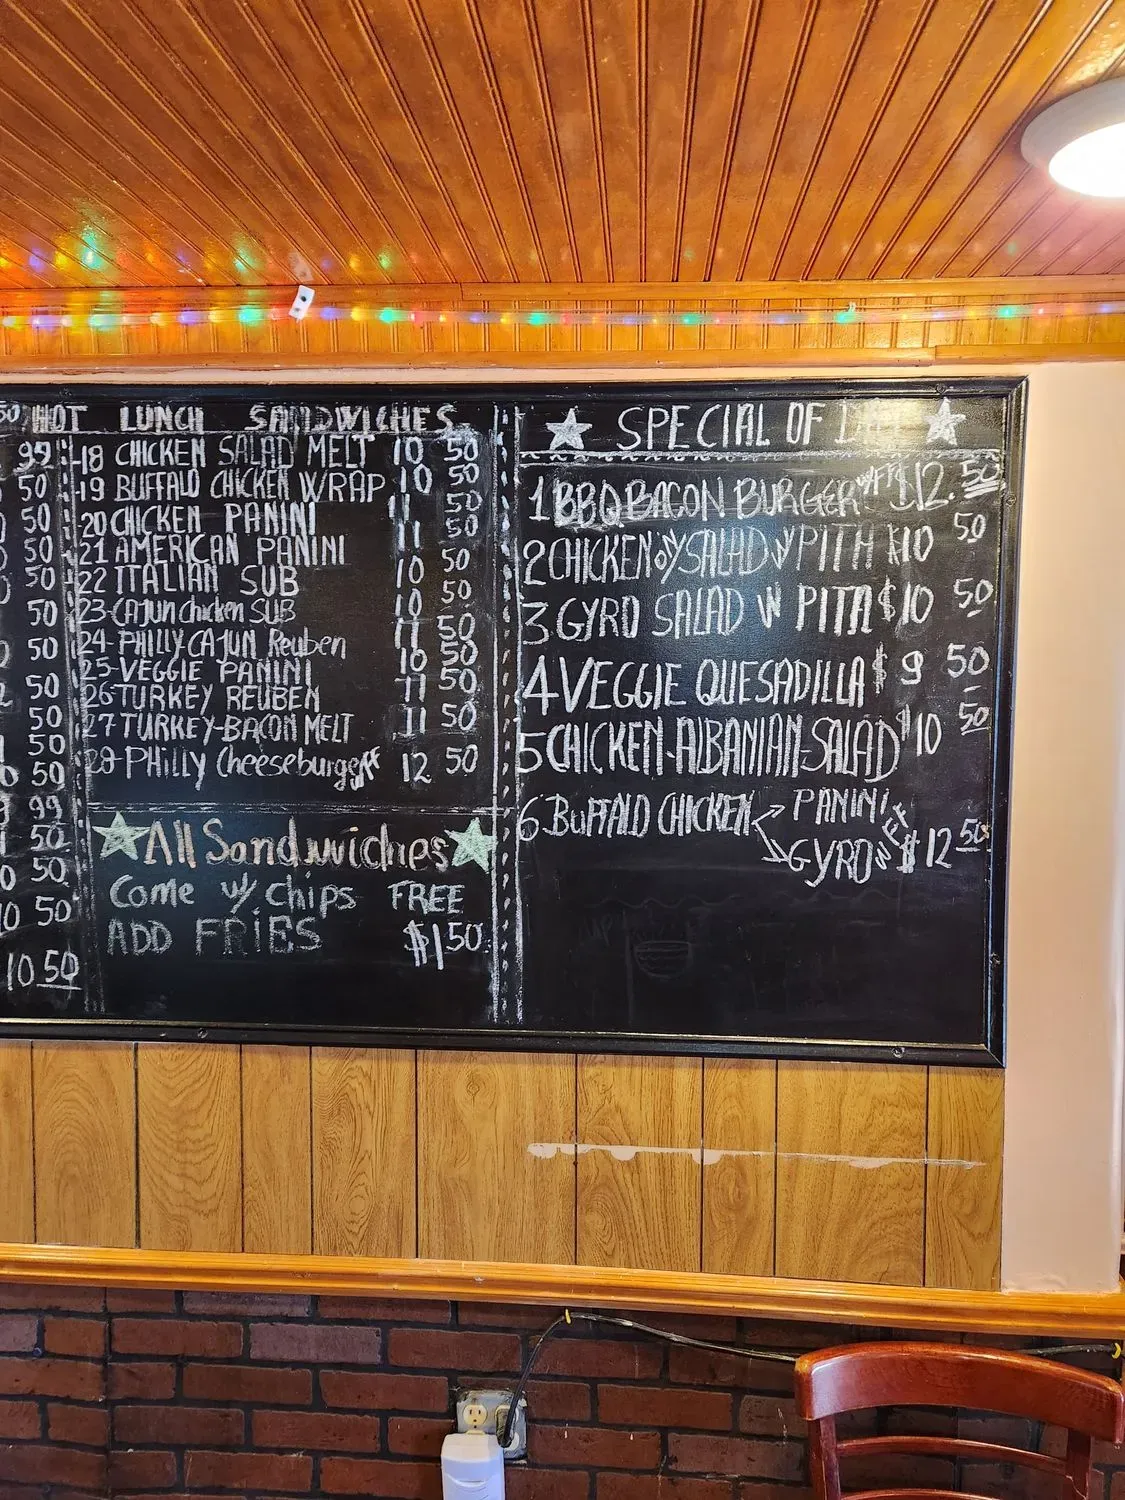 HOT LUNCH SANDWICHES
18 CHICKEN SALAD MELT 10 50
19 BUFFALO CHICKEN WRAP 10 50
20 CHICKEN PANINI 11 50
21 AMERICAN PANINI 11 50
22 ITALIAN SUB 10 50
23-CAJUN chicken SUB 10 50
24-PHILLY CAJUN Reuben 11 50
25-VEGGIE PANINI 10 50
26-TURKEY REUBEN 11 50
27 TURKEY-BACON MELT 11 50
28-PHILLY Cheeseburger 12 50
All Sandwiches
Come w/ chips FREE
ADD FRIES $1 50
99
50
50
50
50
50
50
50
50
50
50
99
50
50
10 50
10 50
SPECIAL OF
1 BBQ BACON BURGER W/FF $12.50
2 CHICKEN SALAD W PITA $10 50
3 GYRO SALAD W PITA $10 50
4 VEGGIE QUESADILLA $9 50
5 CHICKEN-ALBANIAN-SALAD $10 50
6 BUFFALO CHICKEN PANINI
GYRO W FF $12 50